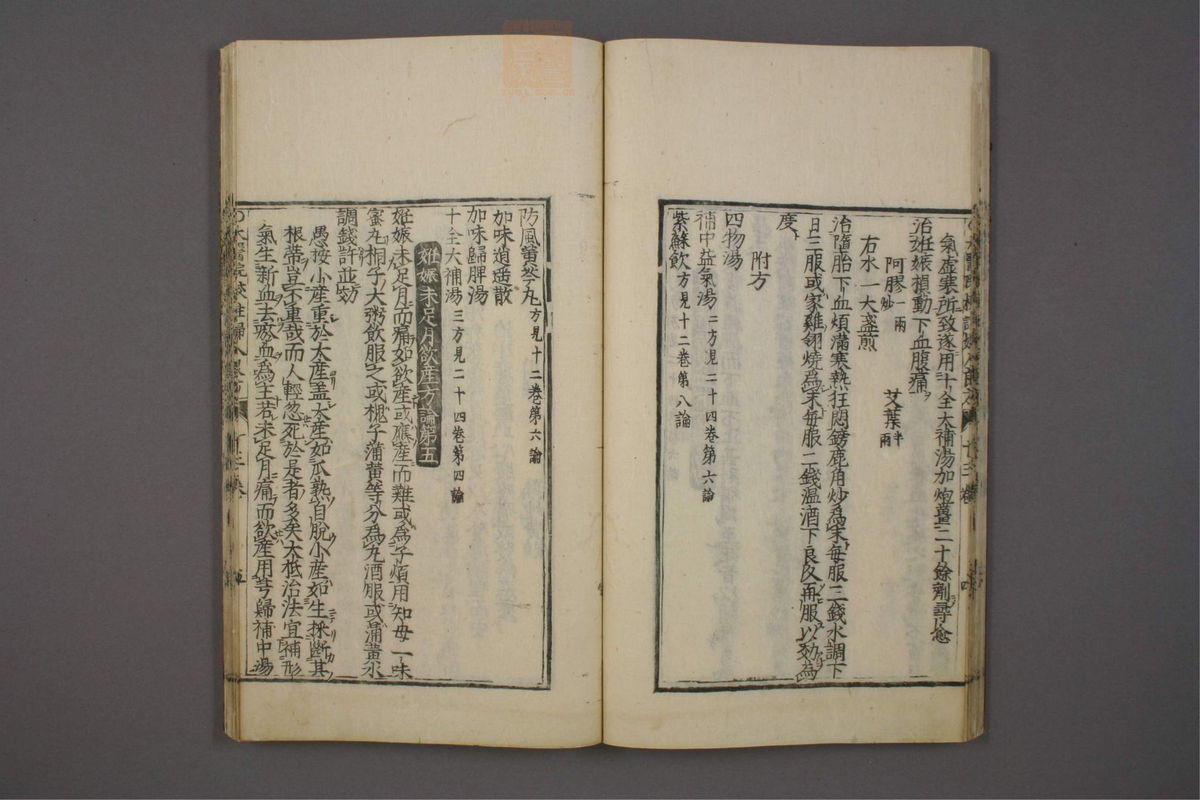 氣虛寒所致遂用十全大補湯加炮薑二十餘劑尋愈
治姙娠損動下血腹痛
阿膠一兩炒 艾葉半兩
右水一大盞煎
治墮胎下血煩滿寒熱狂悶鎊鹿角炒爲末每服三錢水調下
日三服或家雞翎燒爲末每服二錢温酒下良久再服以効爲
度
附方
四物湯
補中益氣湯二方見二十四卷第六論
紫蘇飲方見十二卷第八論
防風黄芩丸方見十二卷第六論
加味逍遥散
加味歸脾湯
十全大補湯三方見二十四卷第四論
姙娠未足月飲産方論第五
姙娠未足月而痛如欲産或應産而難或爲子煩用知母一味
蜜丸梧子大粥飲服之或槐子蒲黄等分爲丸酒服或蒲黄水
調錢許並効
愚按小産重於大産盖大産如瓜熟自脫小産如生採斷其
根蒂豈不重哉而人輕忽死於是者多矣大抵治法宜補形
氣生新血去瘀血爲主若未足月痛而欲産用芎歸補中湯